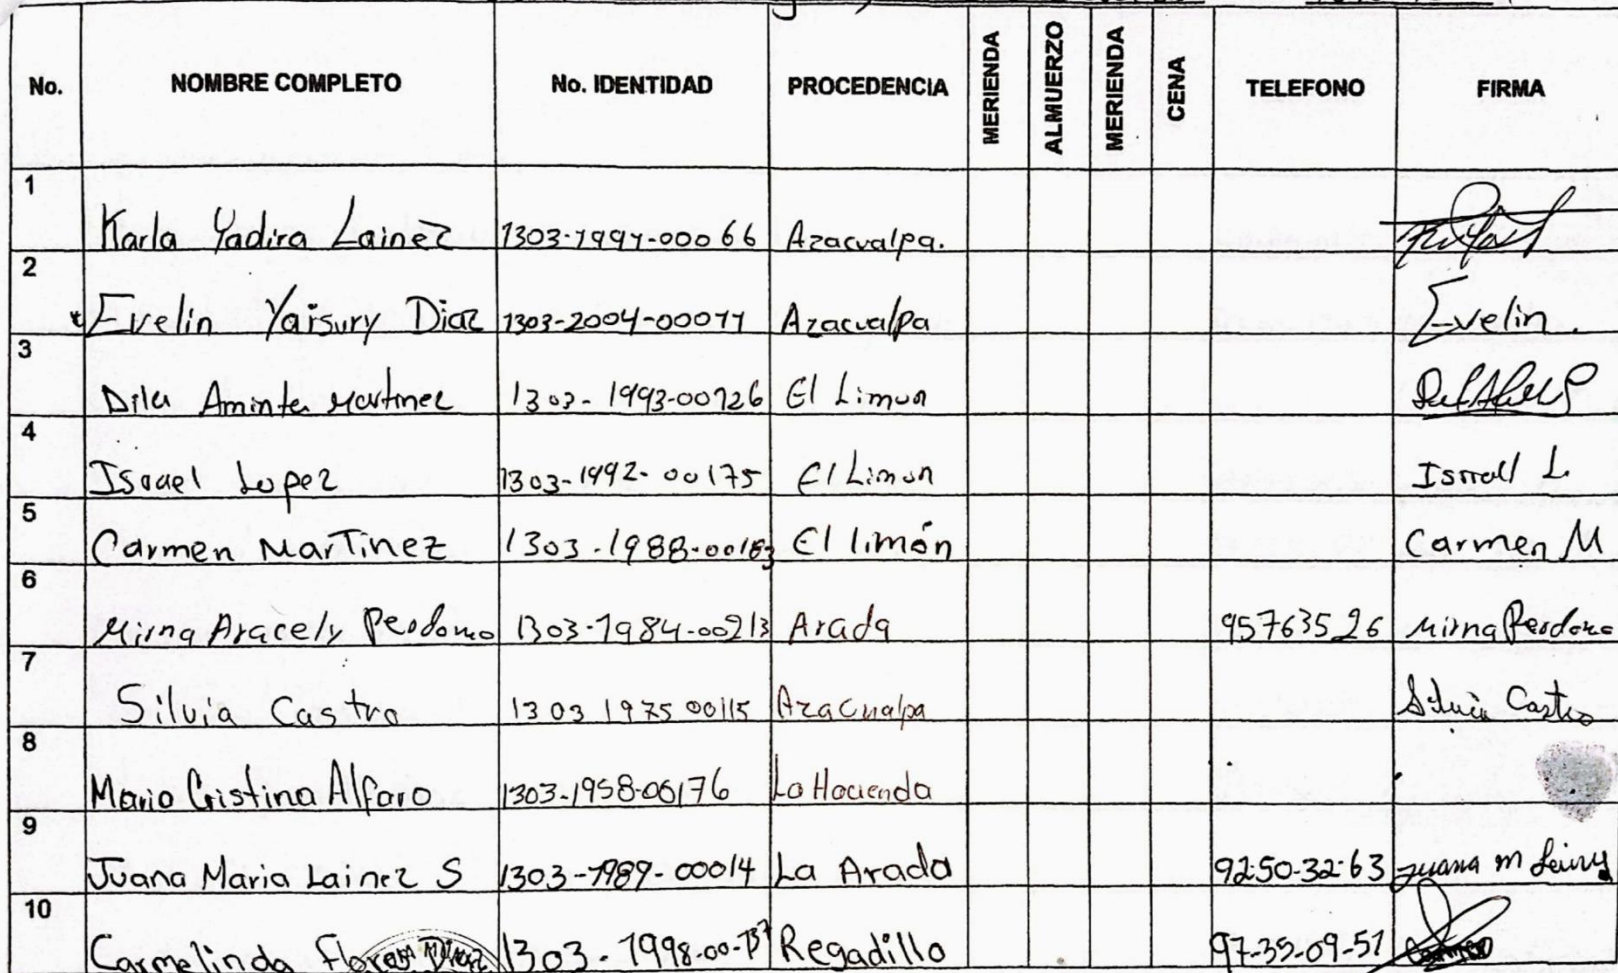 No. NOMBRE COMPLETO No. IDENTIDAD PROCEDENCIA MERIENDA ALMUERZO MERIENDA CENA TELEFONO FIRMA
1 Karla Yadira Lainez 1303-1991-00066 Azacualpa.
2 Evelin Yaisury Diaz 1303-2004-00011 Azacualpa Evelin.
3 Dilu Aminta Martinez 1303-1993-00126 El Limon
4 Isrrael Lopez 1303-1992-00175 El Limon L.
5 Carmen Martinez 1303-1988-00183 El limón Carmen M
6 Mirna Aracely Perdomo 1303-1984-00213 Arada 95763526 Mirna Perdomo
7 Silvia Castro 1303 1975 00115 Azacualpa Silvia Castro
8 Maria Cristina Alfaro 1303-1958-00176 La Hacienda
9 Juana Maria Lainez S 1303-1989-00014 La Arada 92-50-32-63 Juana M
10 Carmelinda Flores 1303-1998-00-137 Regadillo 97-35-09-51